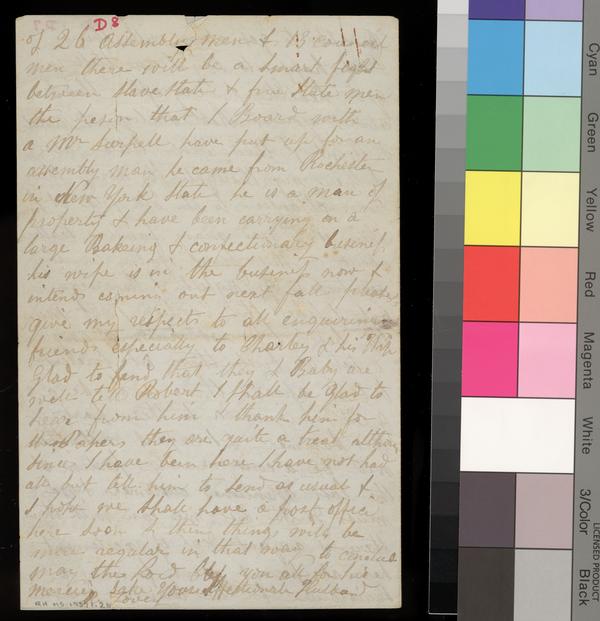 D8
of 26 assembly men & 13 council
men there will be a smart fight
between Slave State & free State men
the person that I Board with
a Mr have put up for an
assembly man he came from Rochester
in New York State he is a man of
property & have been carrying on a
large Bakeing & confectionary business
his wife is in the business now &
intends coming out next fall please
give my respects to all enquireing
friends especially to Charley & his Wife
Glad to find that they & Baby are
well tell Robert I shall be Glad to
hear from him & thank him for
the Papers they are quite a treat altho
since I have been here I have not had
all but tell him to send as usual &
I hope we shall have a post office
here soon & then things will be
more regular in that way to conclude
may the Lord bless you all for his
mercies sake Your affectionate Husband
Cyan
Green
Yellow
Red
Magenta
White
3/Color
Black
LICENSED PRODUCT